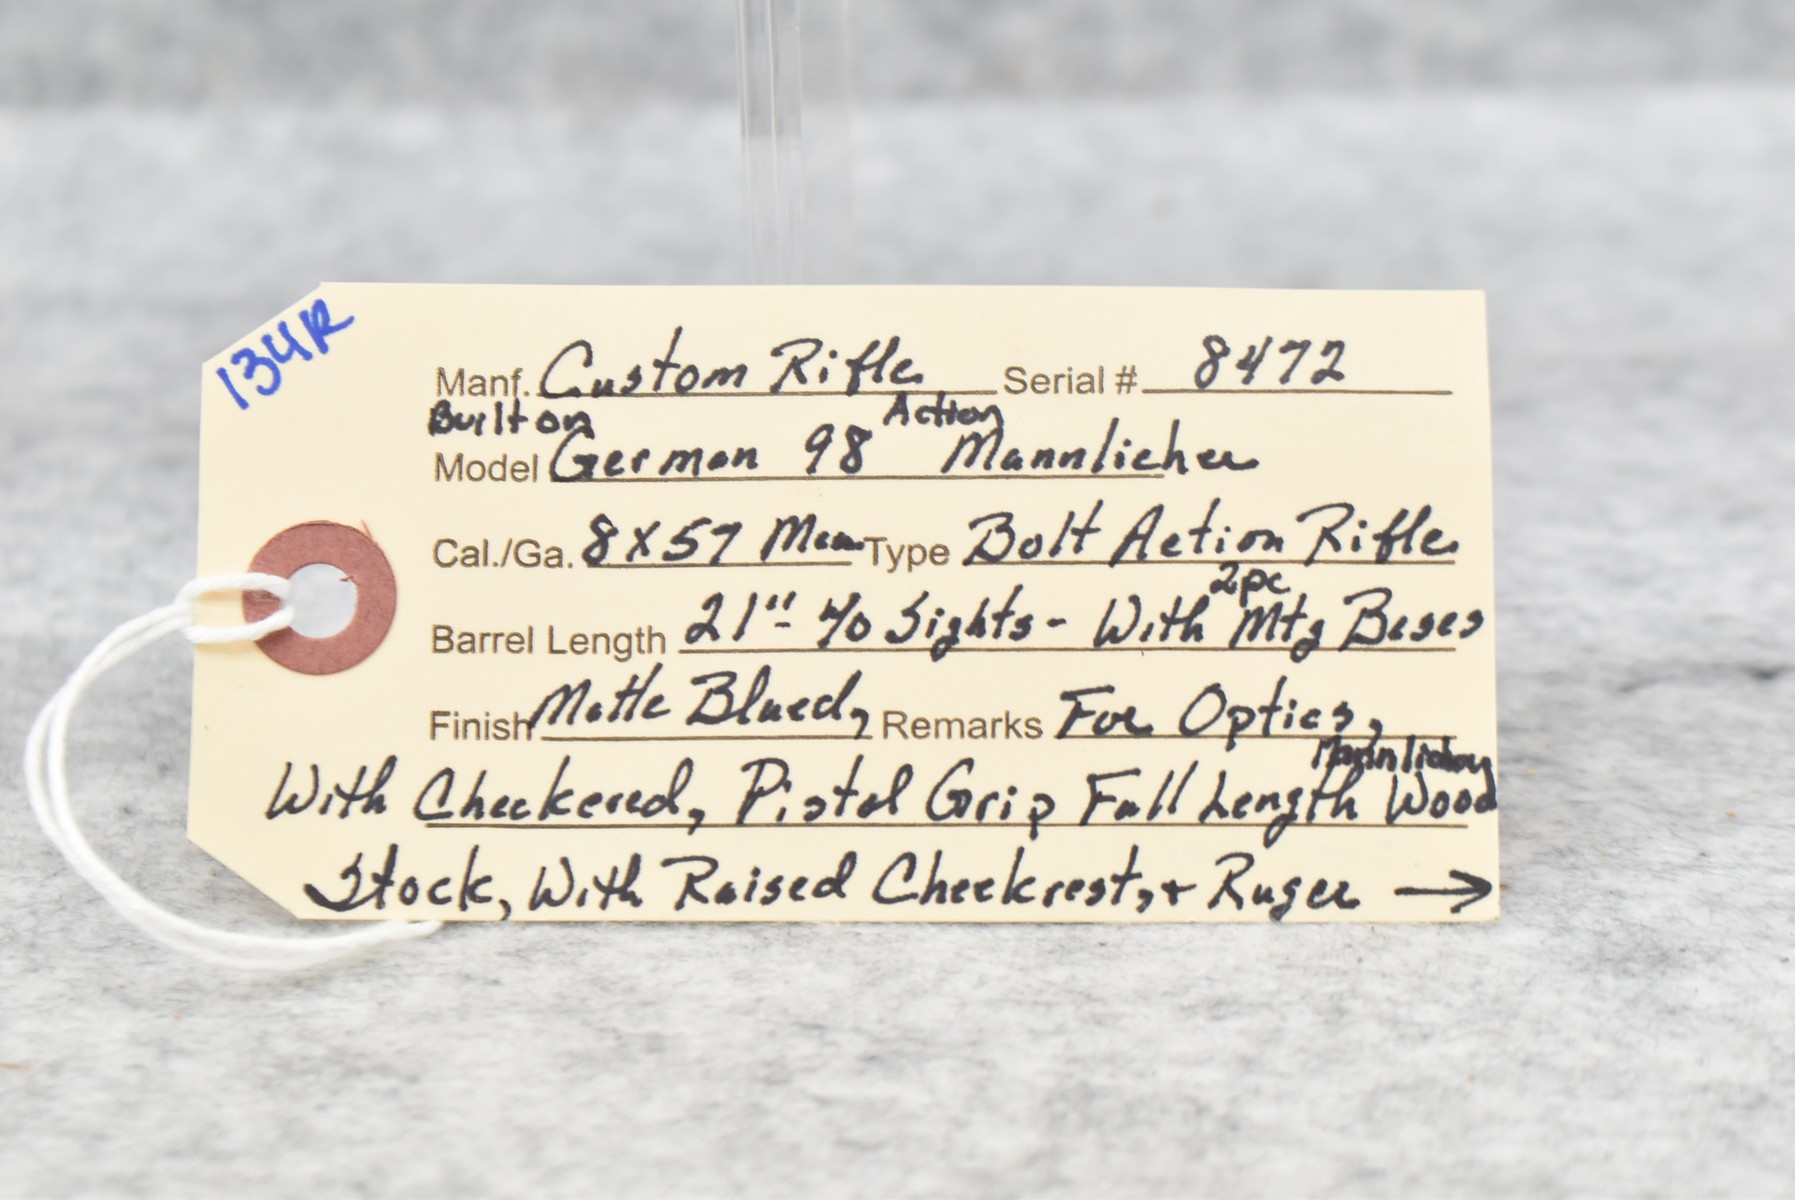 134R
Manf. Custom Rifle Serial # 8472
Built on Action
Model German 98 Mannlicher
Cal./Ga. 8x57 Mm Type Bolt Action Rifle
2pc
Barrel Length 21" - W/o Sights - With Mtg Bases
Finish Matte Blued, Remarks For Optics,
Mannlicher
With Checkered, Pistol Grip Full Length Wood
Stock, With Raised Cheekrest, + Ruger →